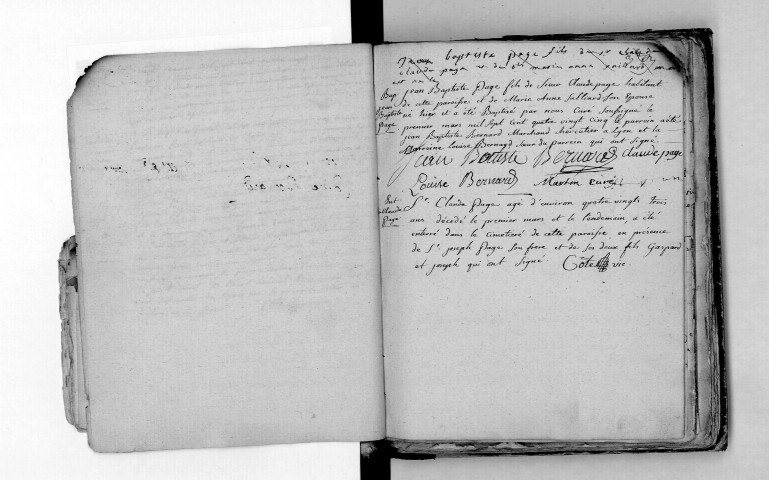 jean baptiste page fils de sr
claude page et de marie anne
est né
Bap
jean
Baptiste
page
jean Baptiste Page fils de Sieur Claude page habitant
de cette paroisse et de Marie Anne Salliard son Epouse
né hier et a été Baptisé par nous Curé soussigné le
premier mars mil sept cent quatre vingt cinq le parrein a été
jean Baptiste Bernard Marchand à Lyon et la
Marreine louise Bernard Sœur du parrein qui ont signé
Jean Batiste Bernard claude page
Louise Bernard Martin curé
Claude
Page
Sr. Claude Page agé d'environ quatre vingts trois
ans décédé le premier mars et le lendemain a été
enterré dans le cimetiere de cette paroisse en présence
de Sr. joseph Page son frere et de ses deux fils Gaspard
et joseph qui ont signé Côte vic.